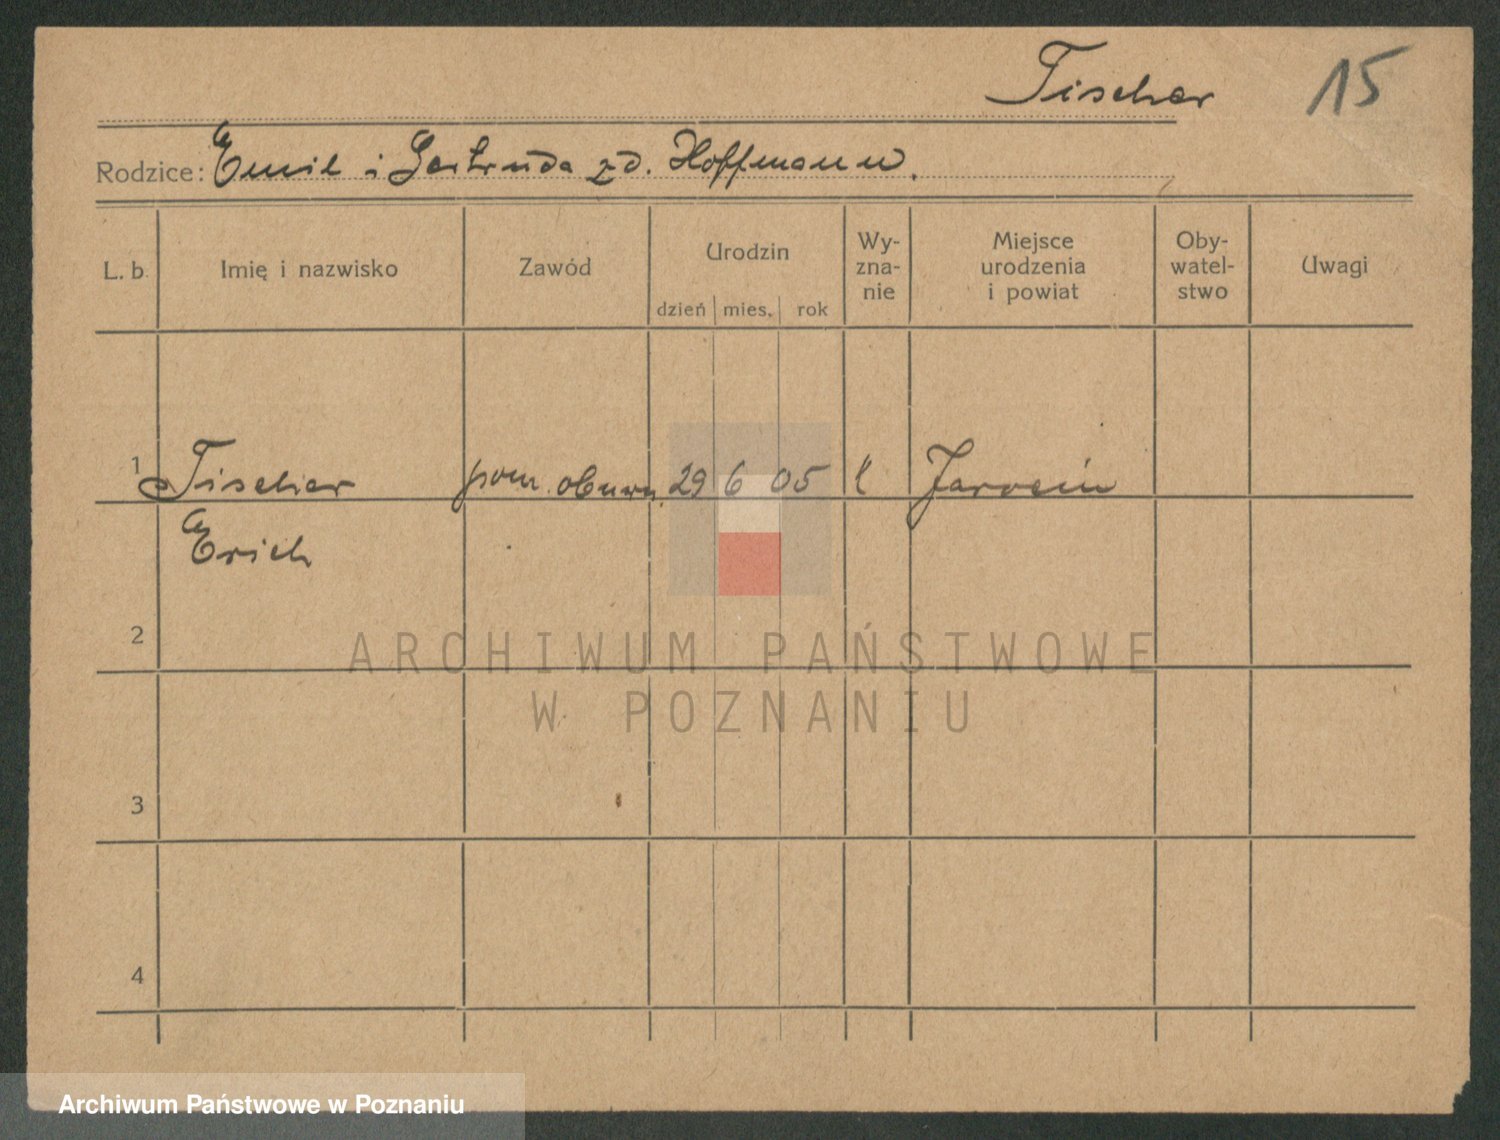 Tischer 15
Rodzice: Emil i Gertruda zd. Hoffmann.
L. b. Imię i nazwisko Zawód Urodzin Wy-zna-nie Miejsce urodzenia i powiat Oby-watel-stwo Uwagi
dzień mies. rok
1 Tischer pom. obuwn. 29 6 05 Jarocin
Erich
2
ARCHIWUM PAŃSTWOWE
W POZNANIU
3
4
Archiwum Państwowe w Poznaniu